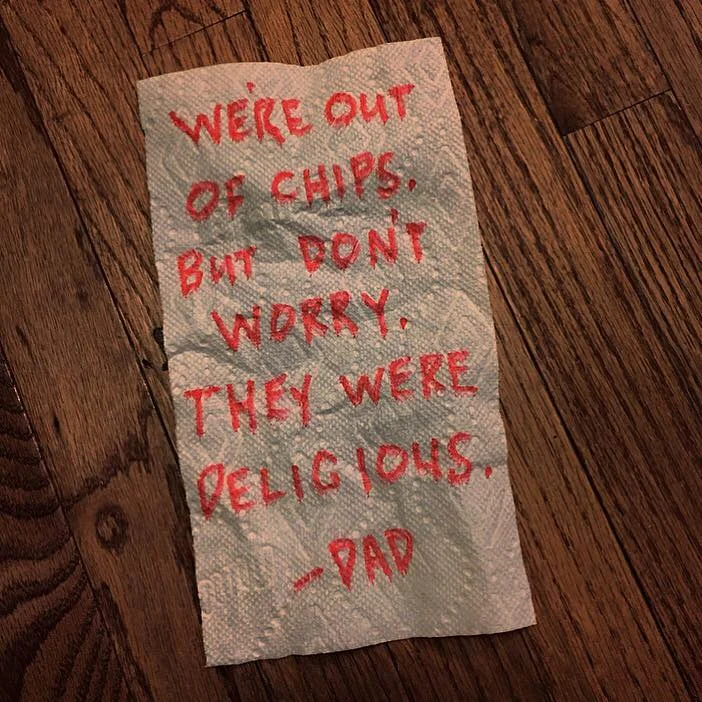 WE'RE OUT
OF CHIPS.
BUT DON'T
WORRY.
THEY WERE
DELICIOUS.
-DAD